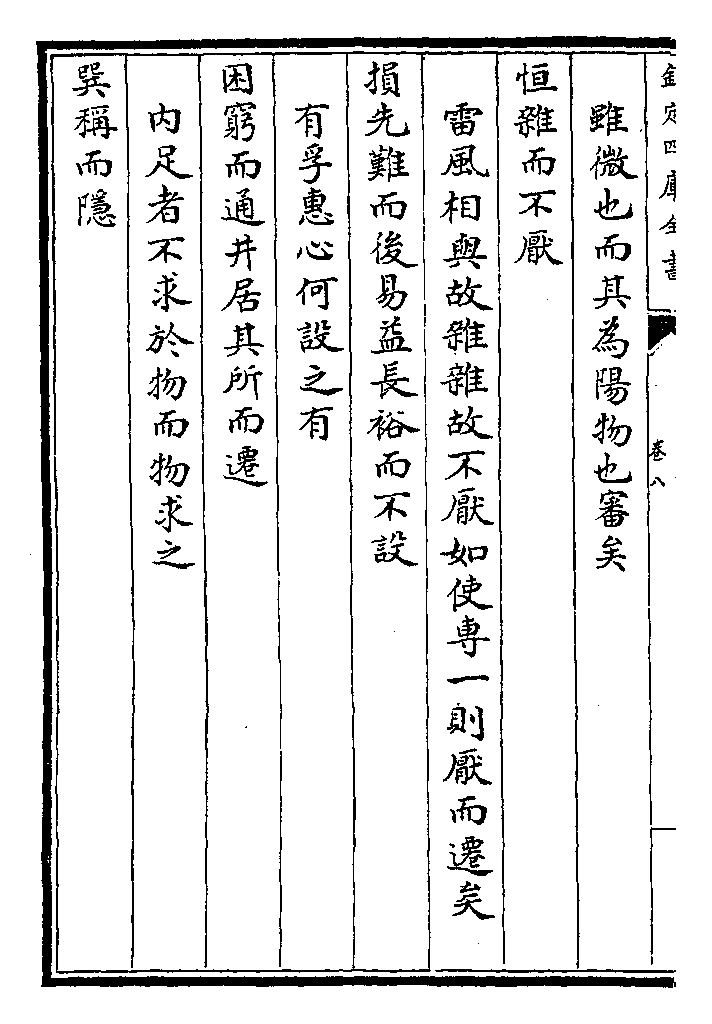 欽定四庫全書
卷八
雖微也而其為陽物也審矣
恒雜而不厭
雷風相與故雜雜故不厭如使專一則厭而遷矣
損先難而後易益長裕而不設
有孚惠心何設之有
困窮而通井居其所而遷
内足者不求於物而物求之
巽稱而隱